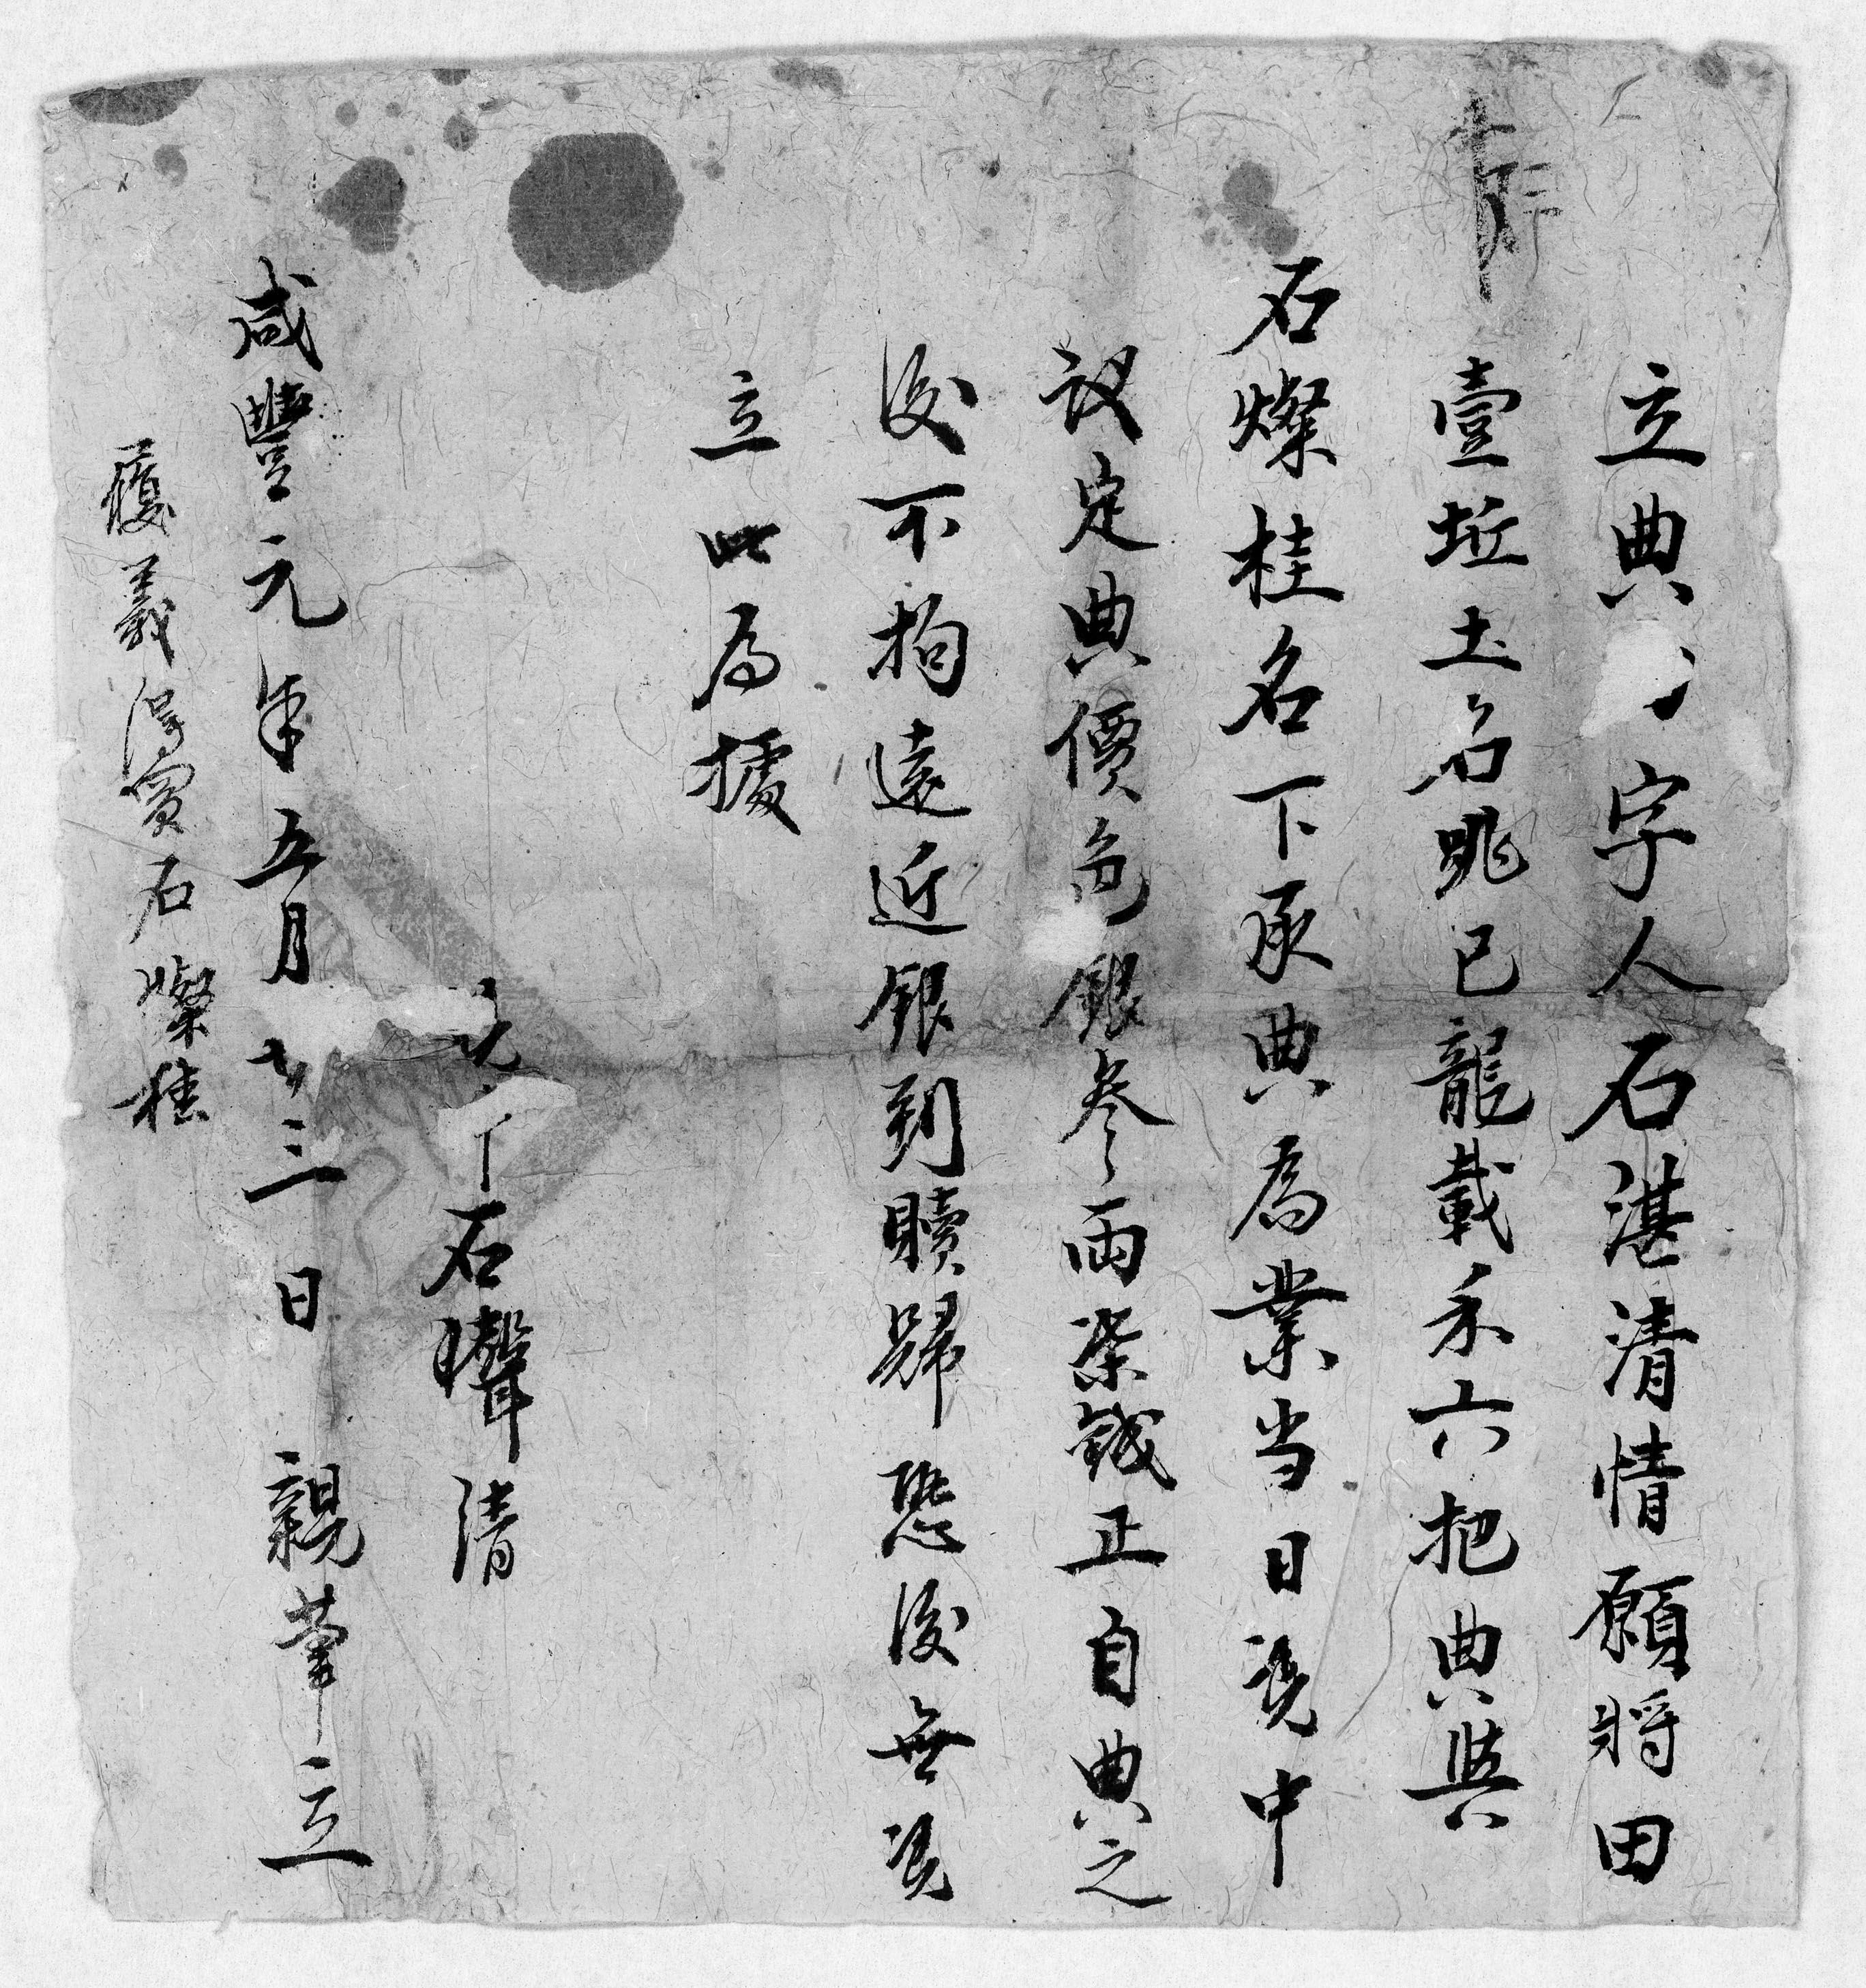 立典字人石湛清情願將田
壹坵土名晀己龍載禾六把典與
石燦桂名下承典為業当日凭中
议定典價色銀叄両柒錢正自典之
後不拘遠近銀到贖歸恐後無凭
立此為據
石聲清
咸豐元年五月廿三日 親筆立
石燦桂